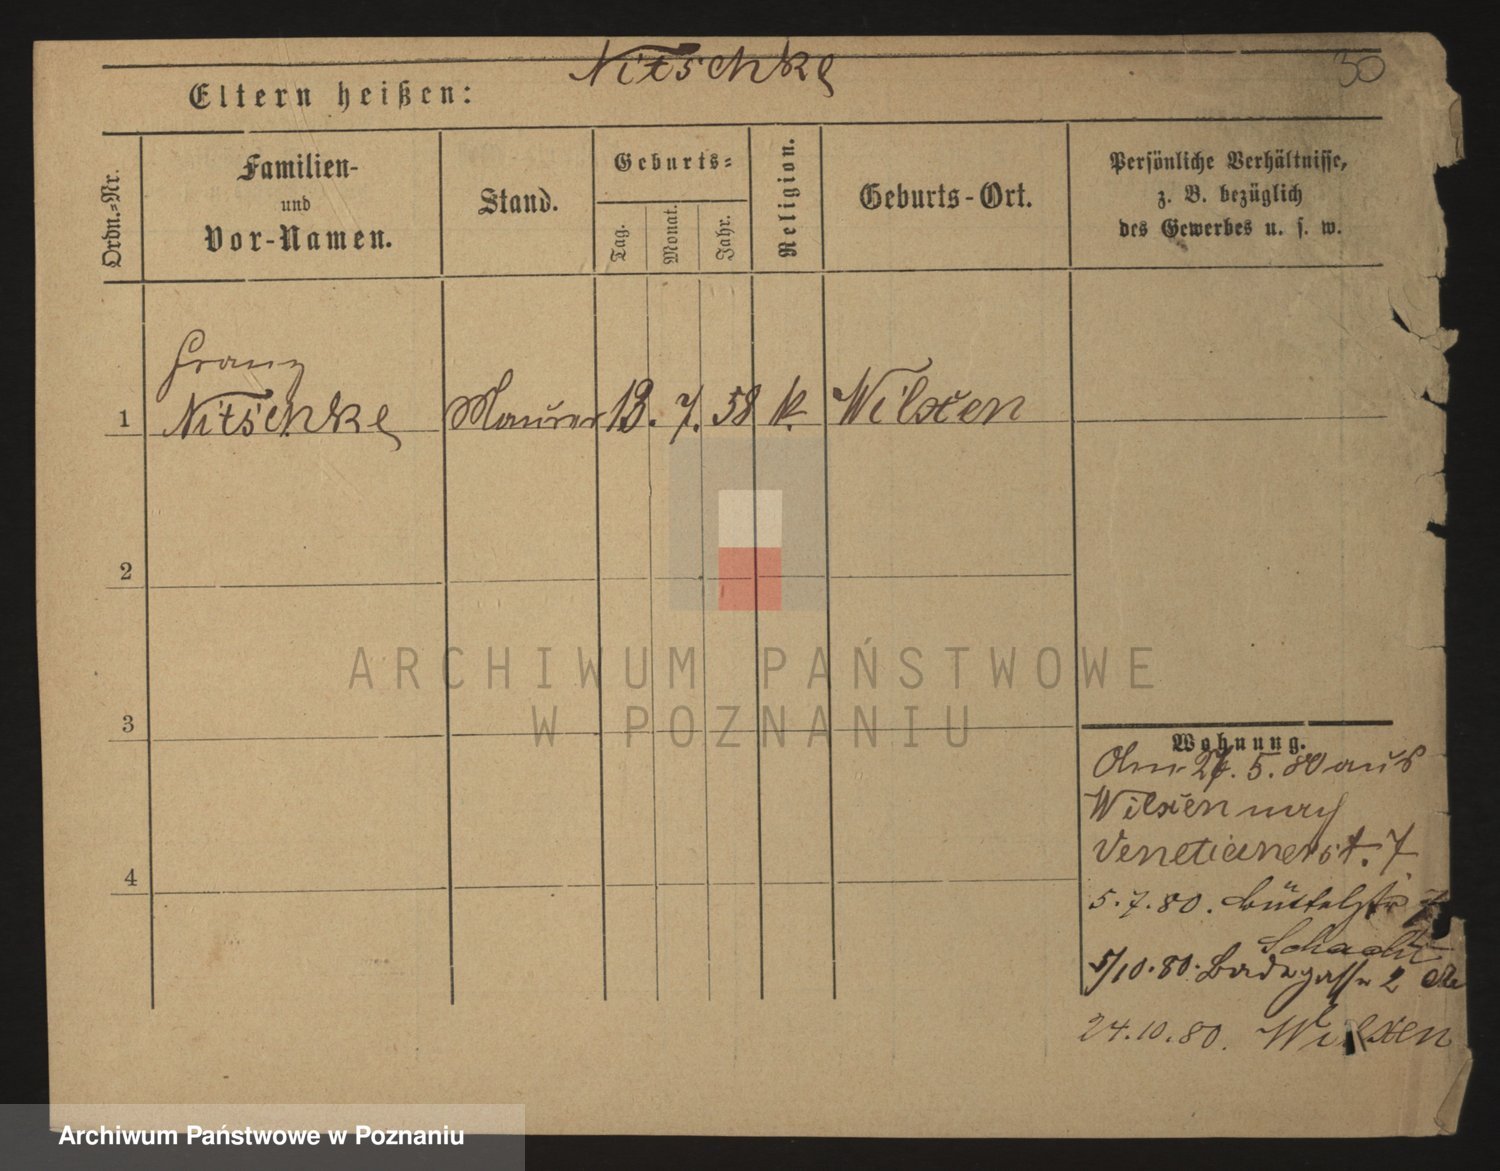 Nitschke
30
Eltern heißen:
Ordn.-Nr.
Familien-
und
Vor-Namen.
Stand.
Geburts-
Tag.
Monat.
Jahr.
Religion.
Geburts-Ort.
Persönliche Verhältnisse,
z. B. bezüglich
des Gewerbes u. s. w.
Franz
1 Nitschke Maurer 13. 7. 58 k. Wilxen
2
3
4
Wohnung.
5. 80 aus
Wilxen nach
Venetianerst. 7
5. 7. 80. Büttelstr 7
5/10. 80. Badegasse 2
24. 10. 80. Wilxen
ARCHIWUM PAŃSTWOWE
W POZNANIU
Archiwum Państwowe w Poznaniu